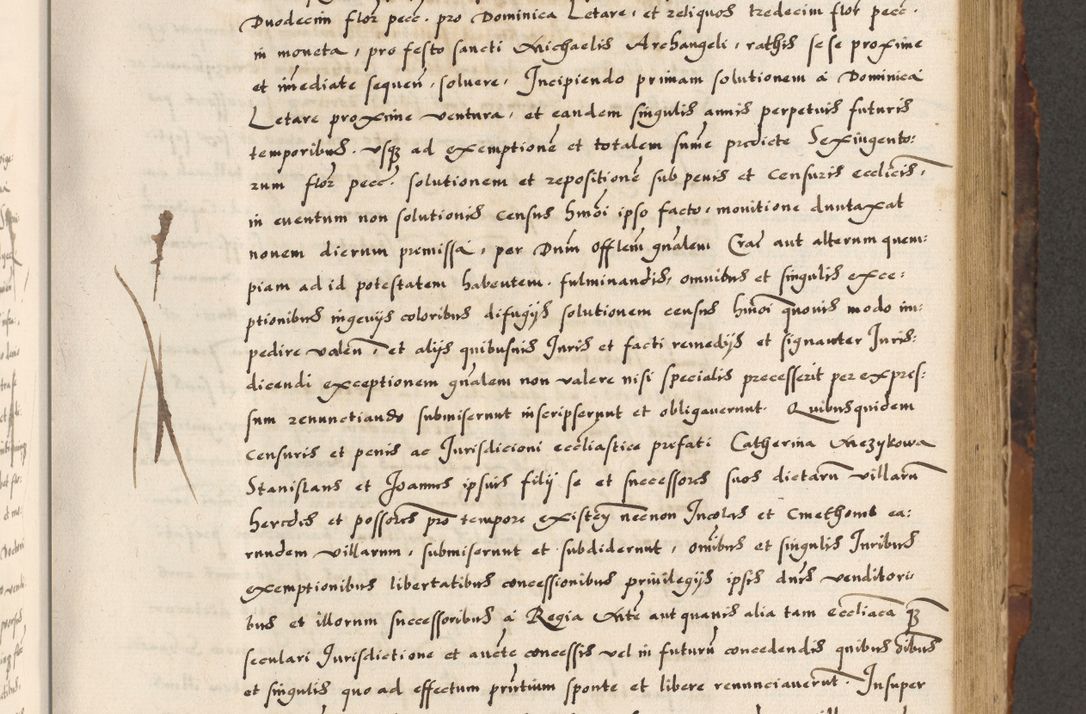 Duodecim flor pecc. pro Dominica Letare, et reliquos tredecim flor pecc.
in moneta, pro festo sancti Michaelis Archangeli, rathis sese proxime
et imediate sequen, soluere, Incipiendo primam solutionem á Dominica
Letare proxime ventura, et eandem singulis annis perpetuis futuris
temporibus, vsq ad exemptione et totalem sume predicte Sexingento:
rum flor pecc. solutionem et repositione sub penis et censuris ecclicis,
in eventum non solutionis census hmoi ipso facto, monitione duntaxat
novem dierum premissa, per Dnm Offlem gnalem Crac aut alterum quem:
piam ad id potestatem habentem. fulminandis, omnibus et singulis exce:
ptionibus ingenijs coloribus difugijs solutionem census hmoi quovis modo im:
pedire valen, et alijs quibusuis Iuris et facti remedijs et signanter Iuris:
dicendi exceptionem gnalem non valere nisi specialis precesserit per expres:
sum renunctiando submiserunt inscripserunt et obligaverunt. Quibusquidem
censuris et penis ac Jurisdicioni eccliastice prefati Catherina Mezykowa
Stanislaus et Joannes ipsius filij se et successores suos dictarum villarum
heredes et possores pro tempore existen necnon Incolas et Cmethones ea:
rundem villarum, submiserunt et subdiderunt, omibus et singulis Iuribus
exemptionibus libertatibus concessionibus priuilegijs ipsis dnis venditori
bus et illorum successoribus á Regia Mte aut quavis alia tam eccliaca q
seculari Jurisdictione et aucte concessis vel in futurum concedendis quibus oibus
et singulis quo ad effectum pntium sponte et libere renunciaverunt. Insuper